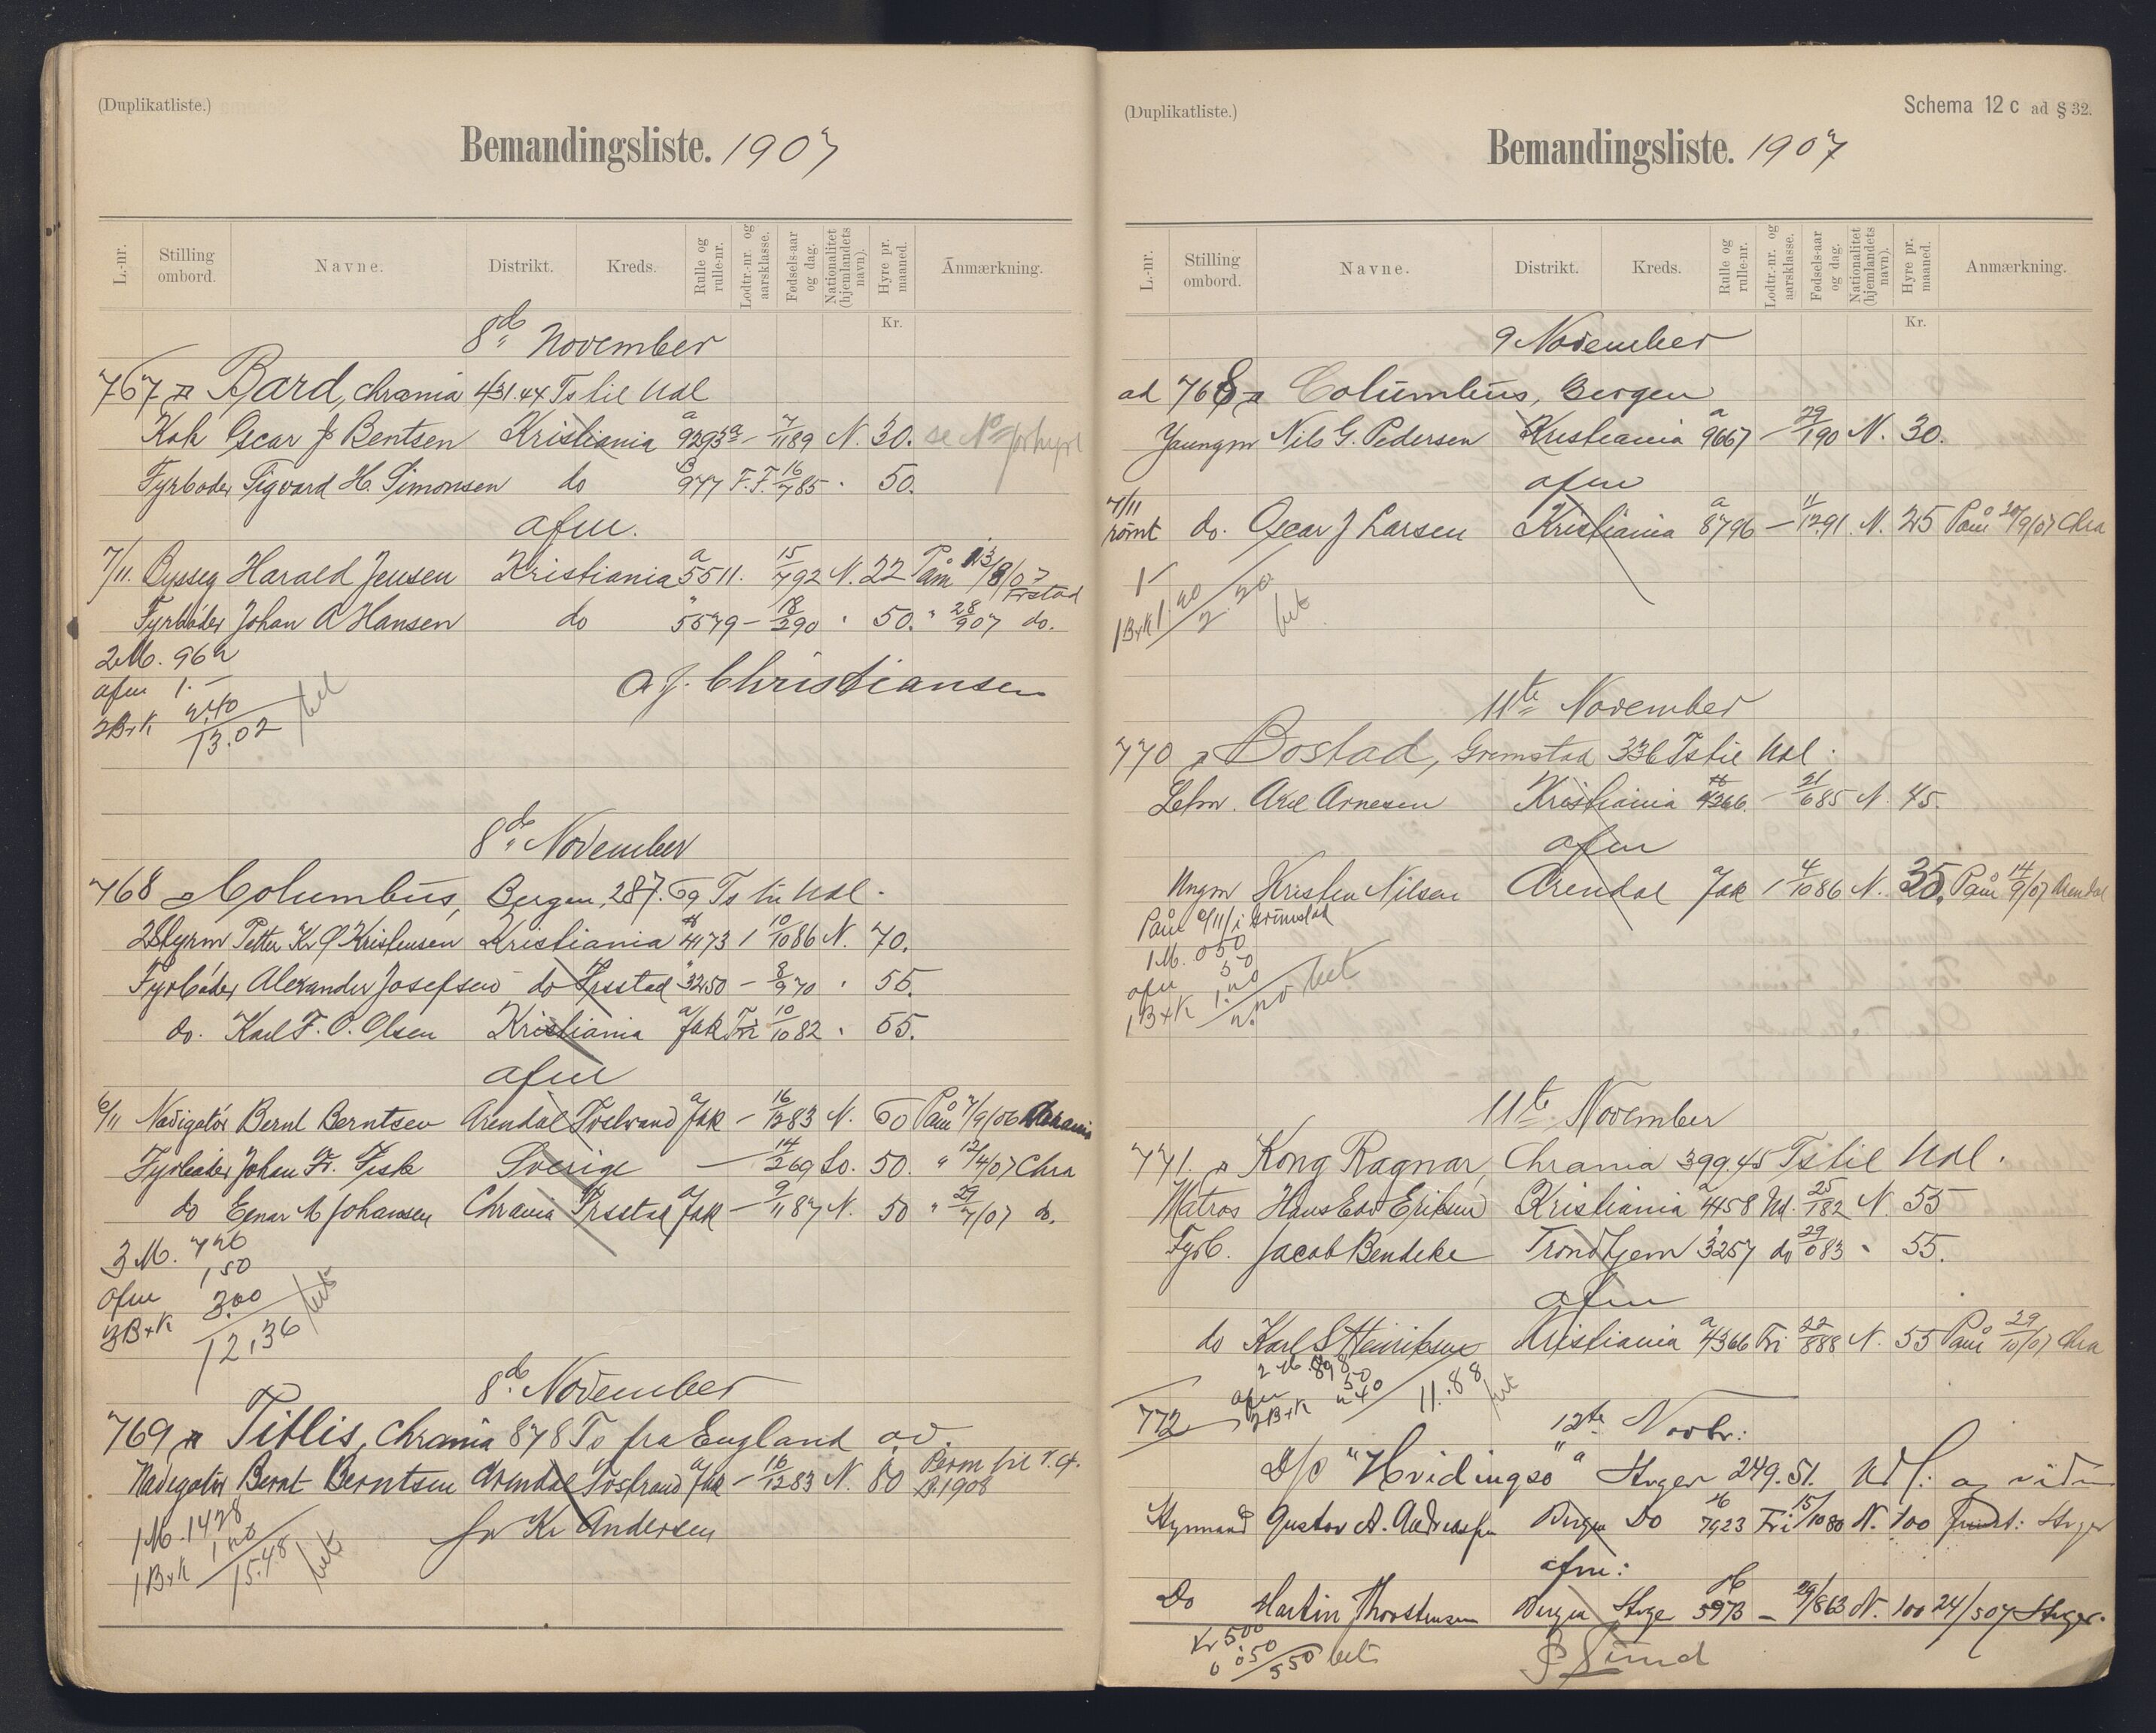 (Duplikatliste.)
Bemandingsliste. 1907
L.-nr. Stilling ombord. Navne. Distrikt. Kreds. Rulle og rulle-nr. Lodtr.-nr. og aarsklasse. Fødsels-aar og dag. Nationalitet (hjemlandets navn). Hyre pr. maaned. Anmærkning.
Kr.
8de November
767 Bard, Chrania 431.44 Ts til Udl
Kok Oscar J Bentsen Kristiania a 9293 7/1189 N. 30.
Fyrbøder Sigvard H. Simonsen do 977 F.F. 16/785 50.
afm.
7/11. Bysseg Harald Jensen Kristiania a 5511. 15/792 N. 22 Påm 13/8/07 Frstad
Fyrbøder Johan A Hansen do 5579 – 18/290 50. " 28/907 do.
2M. 962
afm 1.–
2B+K 2,40
13.02 bet
A J. Christiansen
8de November
768 Columbus, Bergen, 287.69 Ts til Udl.
2Styrm Petter Kr O Kristensen Kristiania 4173 1 10/1086 N. 70.
Fyrbøder Alexander Josefsen do Frsstad 3250 – 8/970 55.
do. Karl F. O. Olsen Kristiania a Jak Fri 10/1082 55.
afm
6/11 Navigatør Bernt Berntsen Arendal Jak – 16/1283 N. 60 Påm 7/9/06 Chrania
Fyrbøder Johan Fr. Fisk Sverige – 14/269 So. 50. " 12/4/07 Chra
do Ejnar M Johansen Chrania Frsstad Jak – 9/1187 N. 50 " 29/7/07 do.
3 M. 726
afm 1,50
3B+K 3.00
12,36 bet
8de November
769 Titlis, Chrania 878 Ts fra England
Navigatør Bernt Berntsen Arendal Jak – 16/1283 N. 80
1908
1M. 1428
1B+K
15.48 bet
for Kr Andersen
(Duplikatliste.)
Schema 12 c ad § 32.
Bemandingsliste. 1907
L.-nr. Stilling ombord. Navne. Distrikt. Kreds. Rulle og rulle-nr. Lodtr.-nr. og aarsklasse. Fødsels-aar og dag. Nationalitet (hjemlandets navn). Hyre pr. maaned. Anmærkning.
Kr.
9 November
ad 768 Columbus, Bergen
Jungm Nils G. Pedersen Kristiania a 9667 – 29/190 N. 30.
afm
7/11 rømt do. Oscar J Larsen Kristiania a 8796 – 11/1291. N. 25 Påm 20/9/07 Chra
1–
1B+K 1.20
2.20 bet
11te November
770 Bostad, Grimstad 336 Ts til Udl.
Letm. Axel Arnesen Kristiania 4366 – 21/685 N. 45.
afm
Ungm Kristen Nilsen Arendal Jak 1 4/1086 N. 35. Påm 14/9/07 Arendal
1M. 050
afm 50
1B+K 1.20
2.20 bet
11te November
771. Kong Ragnar, Chrania 399.45 Ts til Udl.
Matros Hans Edv Eriksen Kristiania a 4458 Ud. 25/182 N. 55
Fyrb. Jacob Bendeke Trondhjem 3257 do 29/683 55.
afm
do Karl S Henriksen Kristiania a 4366 Fri 22/888 N. 55 Påm 29/10/07 Chra
2 M. 898
afm 50
2B+K 2 40
11.88 bet
772
12te Novbr:
D/S "Hvidingsø" Stvger 249.51. Udl: og viden
Styrmand Gustav A. Andreassen Bergen Do 7923 Fri 15/1080 N. 100 Stvger
afm:
Do Martin Thorstensen Bergen Stvge 5973 – 29/863 N. 100 24/507 Stvger.
Kr 500
050
550 bet
S Sund